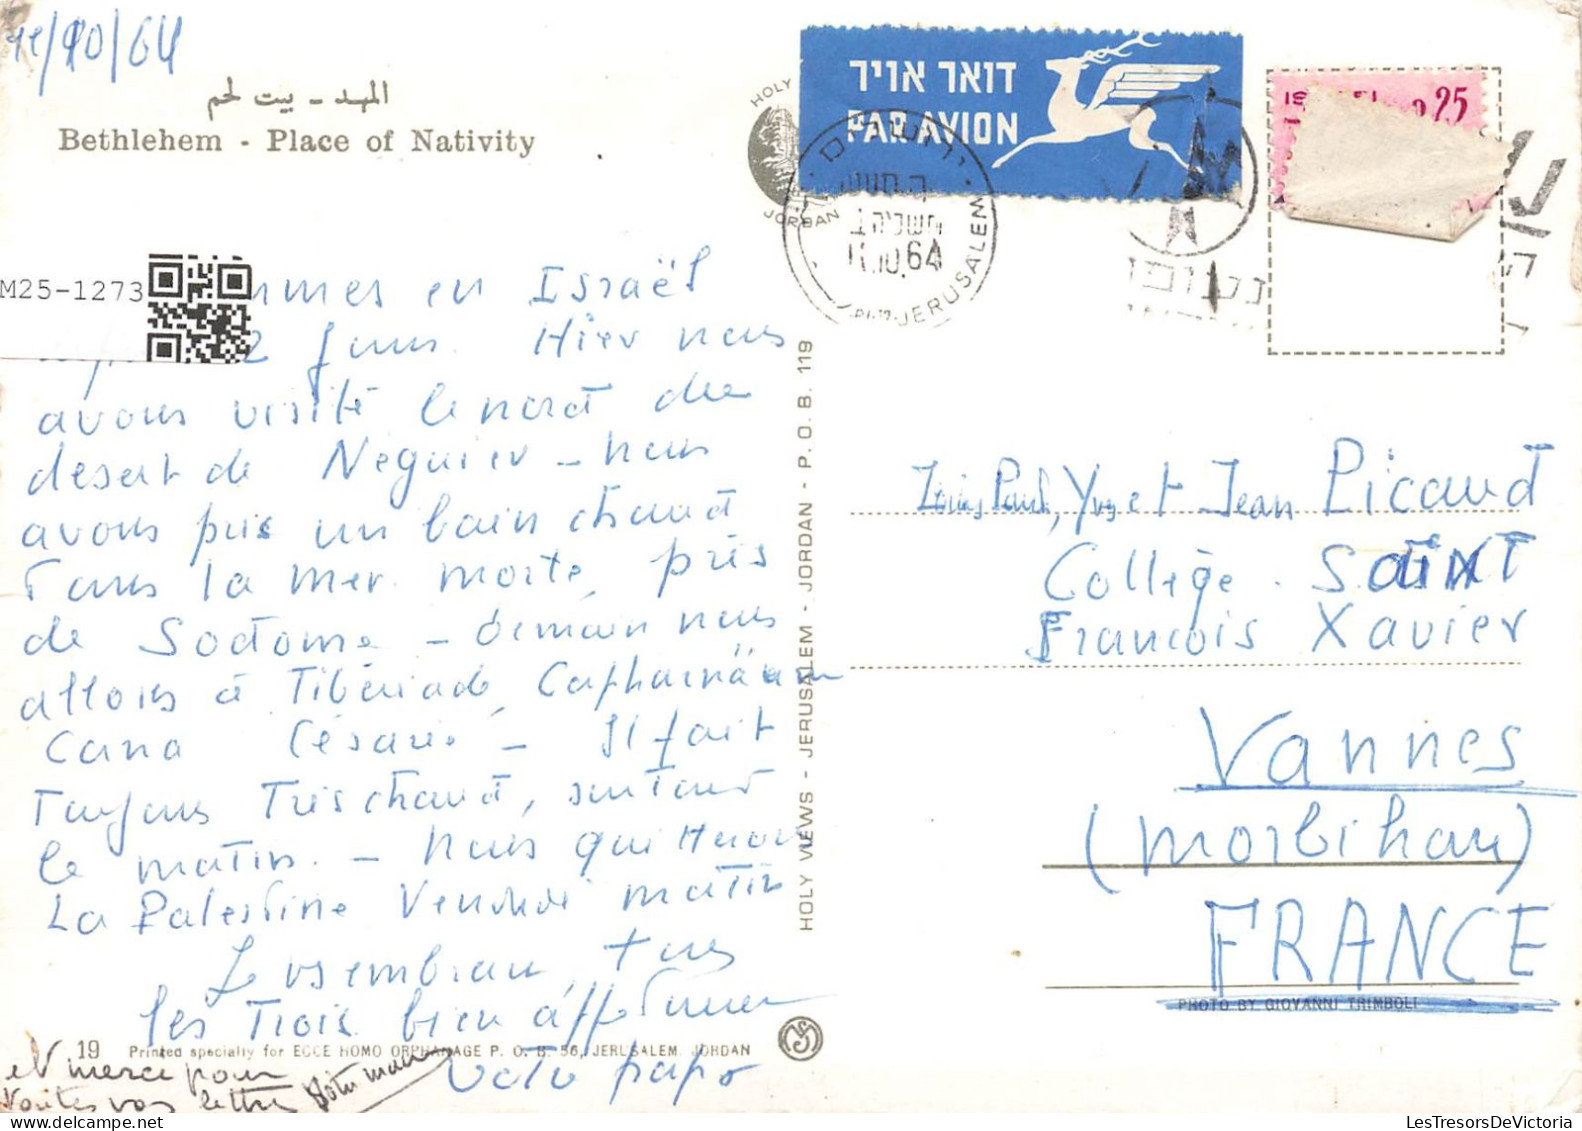 11/10/64
المهد - بيت لحم
Bethlehem - Place of Nativity
HOLY
JORDAN
דואר אויר
PAR AVION
25
JERUSALEM
11.10.64
M25-1273
mmes en Israël
2 jours. Hier nous
avons visité le nord du
desert de Neguiev - nous
avons pris un bain chaud
dans la mer morte, près
de Sodome - demain nous
allons à Tibériade, Capharnäum
Cana Césarée - Il fait
Toujours Très chaud, surtout
le matin. - Nous quitterons
La Palestine Vendredi matin
Je vs embrasse, tous
les Trois bien affectueusement
Votre papa
et merci pour
toutes vos lettres Votre maman
HOLY VIEWS - JERUSALEM - JORDAN - P. O. B. 119
Louis Paul, Yves et Jean Picaud
Collège - SAINT
François Xavier
Vannes
(Morbihan)
FRANCE
PHOTO BY GIOVANNI TRIMBOLI
19 Printed specially for ECCE HOMO ORPHANAGE P. O. B. 56, JERUSALEM. JORDAN
LesTresorsDeVictoria.com